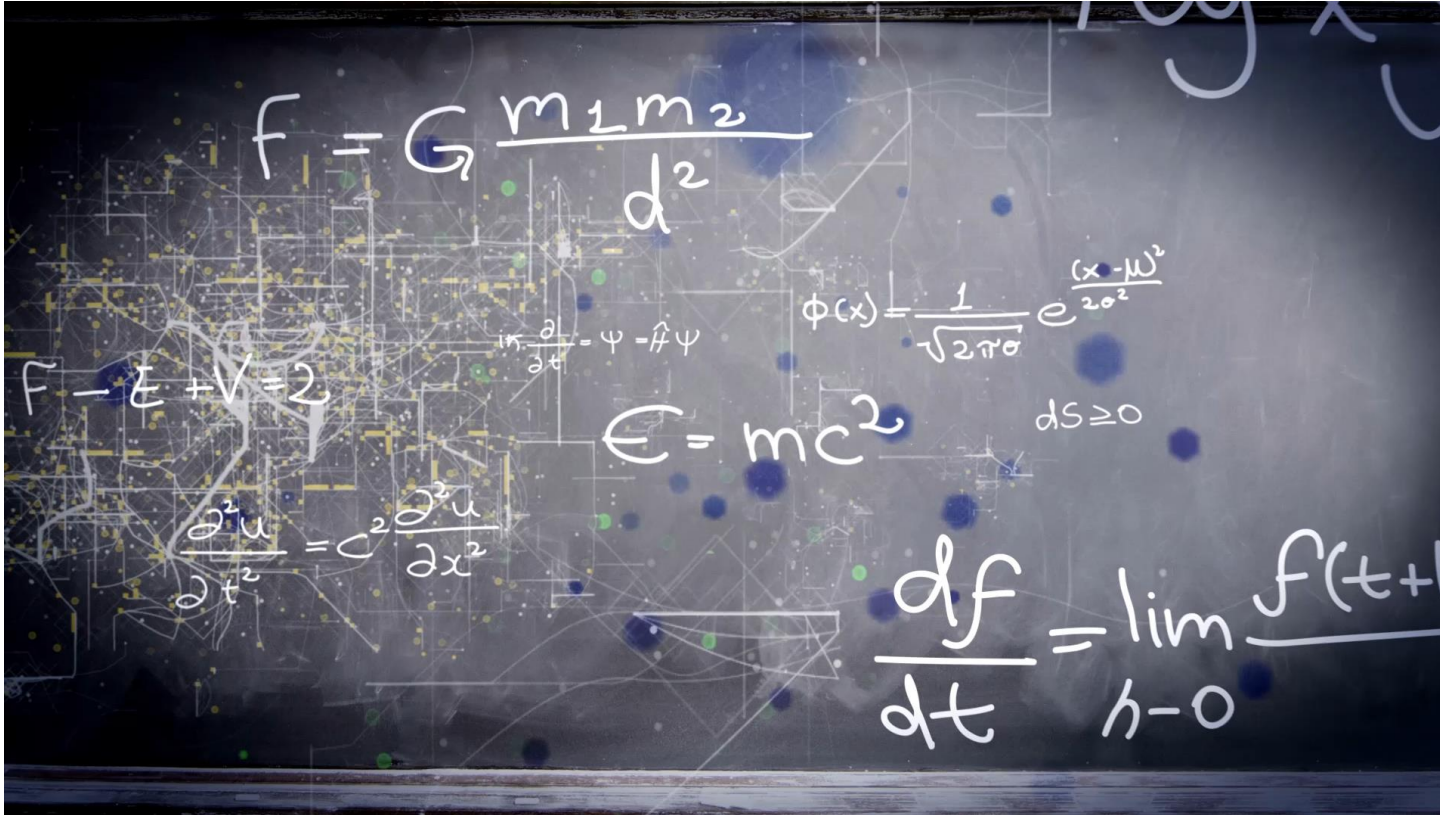 log x y
F = G m1 m2 / d²
ϕ(x) = 1 / √2πσ e^(x-μ)² / 2σ²
iℏ ∂/∂t = Ψ = Ĥ Ψ
F - E + V = 2
E = mc²
dS ≥ 0
∂²u / ∂t² = c² ∂²u / ∂x²
df / dt = lim h-0 f(t+